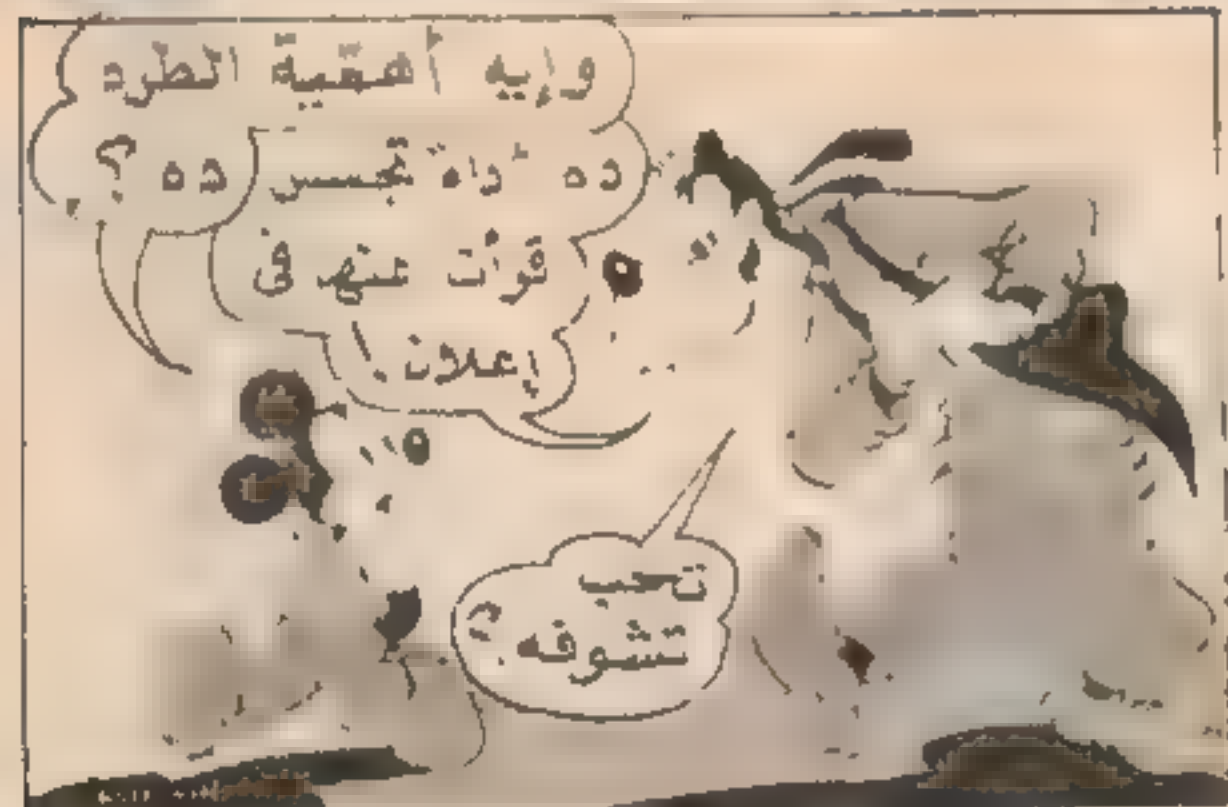 وإيه أهميّة الطرد
ده ؟
ده أداة تجسس
قرأت عنها فى
إعلان !
تحب
تشوفه ؟